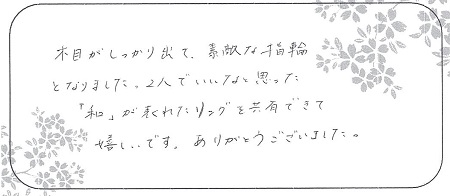 木目がしっかり出て、素敵な指輪
となりました。2人でいいなと思った
「和」が表れたリングを共有できて
嬉しいです。ありがとうございました。